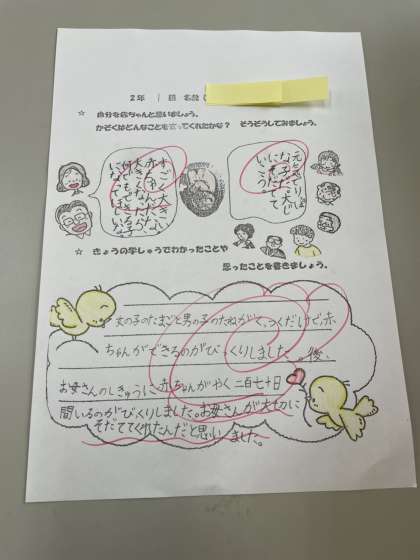 2年 1組 名前(
☆ 自分を赤ちゃんと思いましょう。
かぞくはどんなことを言ってくれたかな? そうぞうしてみましょう。
すごく大きい
赤ちゃんだから
大きくなったら
何でもできる子
になってほしいな
元気なよい
な子だ。大じ
にそだてて
いこう
☆ きょうの学しゅうでわかったことや
思ったことを書きましょう。
女の子のたまごと男の子のたねがく、つくだけで、赤
ちゃんができるのがびっくりしました。後、
お母さんのしきゅうに赤ちゃんがやく二百七十日
間いるのがびくりしました。お母さんが大切に
そだててくれたんだと思いました。